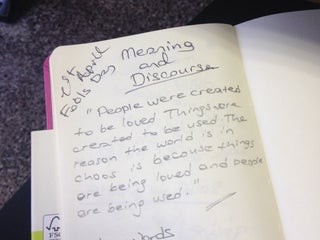 1st April
Fools Day
Meaning
and
Discourse
"People were created
to be loved Things were
created to be used The
reason the world is in
choos is because things
are being loved and people
are being used."
words
FSC